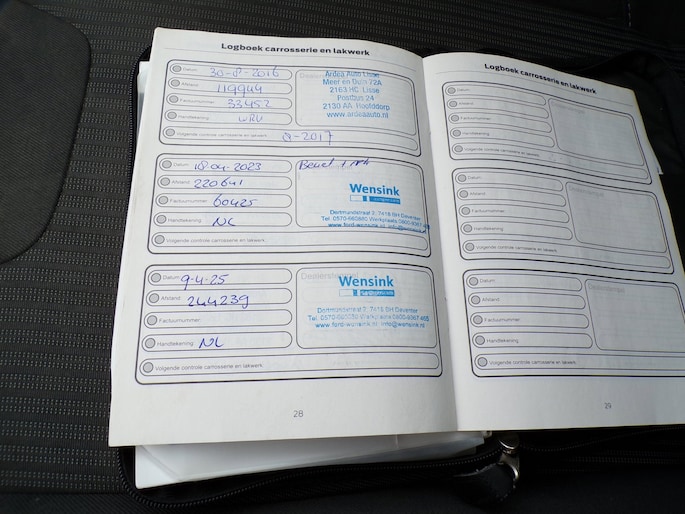 Logboek carrosserie en lakwerk
Datum: 30-8-2016
Afstand: 119944
Factuurnummer: 33452
Handtekening:
Volgende controle carrosserie en lakwerk: 8-2017
Ardea Auto Lisse
Meer en Duin 72A
2163 HC Lisse
Postbus 24
2130 AA Hoofddorp
www.ardeaauto.nl
Datum: 18-04-2023
Afstand: 220641
Factuurnummer: 60425
Handtekening: NL
Volgende controle carrosserie en lakwerk:
Wensink
Dortmundstraat 2, 7418 BH Deventer
Tel. 0570-660660 Werkplaats 0900-9367 465
www.ford-wensink.nl info@wensink.nl
Datum: 9-4-25
Afstand: 244239
Factuurnummer:
Handtekening: NL
Volgende controle carrosserie en lakwerk:
Dealerstempel
Wensink
Dortmundstraat 2, 7418 BH Deventer
Tel. 0570-660660 Werkplaats 0900-9367 465
www.ford-wensink.nl info@wensink.nl
28
Logboek carrosserie en lakwerk
Datum:
Afstand:
Factuurnummer:
Handtekening:
Volgende controle carrosserie en lakwerk:
Datum:
Afstand:
Factuurnummer:
Handtekening:
Volgende controle carrosserie en lakwerk:
Datum:
Afstand:
Factuurnummer:
Handtekening:
Volgende controle carrosserie en lakwerk:
29